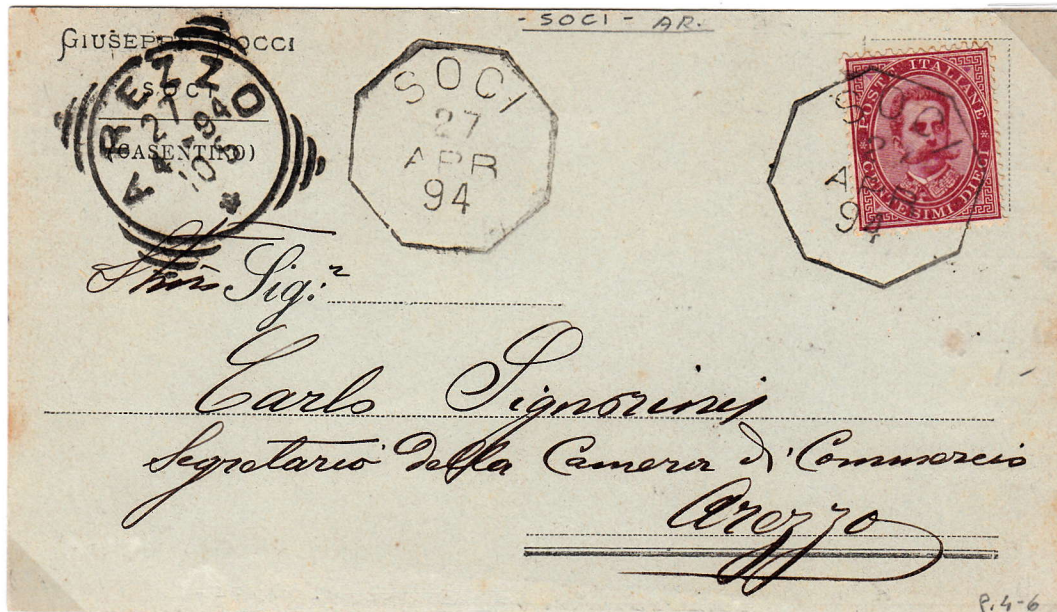 - SOCI - AR.
GIUSEPPE BOCCI
SOCI
(CASENTINO)
AREZZO
27
4-94
10 S
*
SOCI
27
APR
94
POSTE ITALIANE
* CENTESIMI DIECI *
SOCI
27
APR
94
Sig.r
Carlo Signorini
Segretario della Camera di Commercio
Arezzo